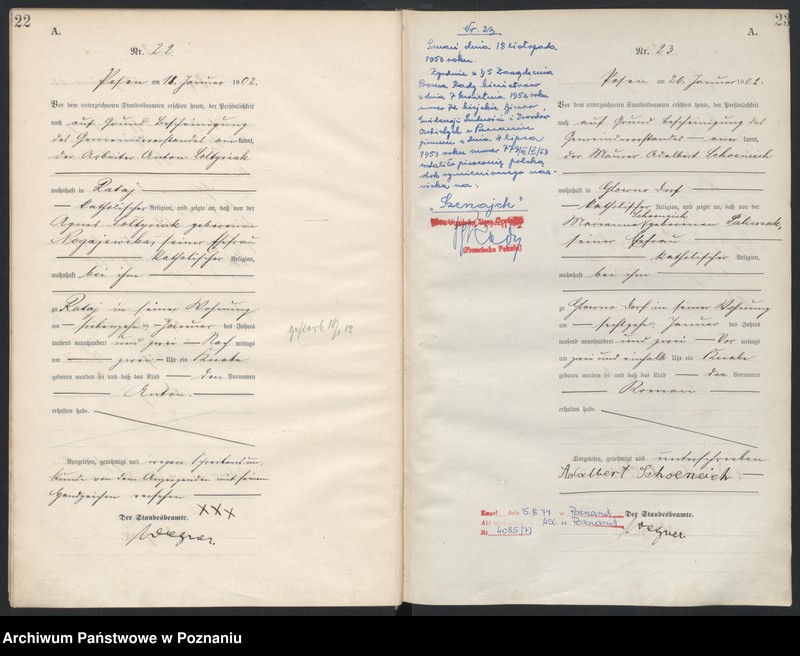 22
A.
Nr. 22
Posen am 18. Januar 1902.
Vor dem unterzeichneten Standesbeamten erschien heute, der Persönlichkeit
nach auf Grund Bescheinigung
des Gemeindevorstandes anerkannt,
der Arbeiter Anton Soltysiak
wohnhaft in Rataj
katholischer Religion, und zeigte an, daß von der
Agnes Soltysiak geborenen
seiner Ehefrau
katholischer Religion,
wohnhaft bei ihm
zu Rataj in seiner Wohnung
am siebenzehn ten Januar des Jahres
tausend neunhundert und zwei Nach mittags
um zwei Uhr ein Knabe
geboren worden sei und daß das Kind den Vornamen
Anton
erhalten habe.
Vorgelesen, genehmigt und wegen Schreibensun-
kunde von dem Anzeigenden mit seinem
Handzeichen versehen
XXX
Der Standesbeamte.
gestorb. 18/1 02
23
A.
Nr. 23
Posen am 20. Januar 1902.
Vor dem unterzeichneten Standesbeamten erschien heute, der Persönlichkeit
nach auf Grund Bescheinigung des
Gemeindevorstandes aner kannt,
der Maurer Adalbert Schoeneich
wohnhaft in Glowno Dorf
katholischer Religion, und zeigte an, daß von der
Marianna Schoeneich geborenen
seiner Ehefrau
katholischer Religion,
wohnhaft bei ihm
zu Glowno Dorf in seiner Wohnung
am sechszehn ten Januar des Jahres
tausend neunhundert und zwei Vor mittags
um zwei und einhalb Uhr ein Knabe
geboren worden sei und daß das Kind den Vornamen
Roman
erhalten habe.
Vorgelesen, genehmigt und unterschrieben
Adalbert Schoeneich
Der Standesbeamte.
Nr. 23
dnia 18 listopada
1953 roku.
Zgodnie z § 5 Zarządzenia
Prezesa Rady Ministrów
z dnia 7 kwietnia 1952 roku
Ewidencji Ludności i Dowodów
Osobistych w Poznaniu
pismem z dnia 4 lipca
1953 roku numer
ustaliło pisownię polską
obok wymienionego naz-
wiska na:
"Szenajch"
(Franciszka Pękala)
dnia 5.8.77 w Poznaniu
Akt USC w Poznaniu
Nr 4085/77
Archiwum Państwowe w Poznaniu